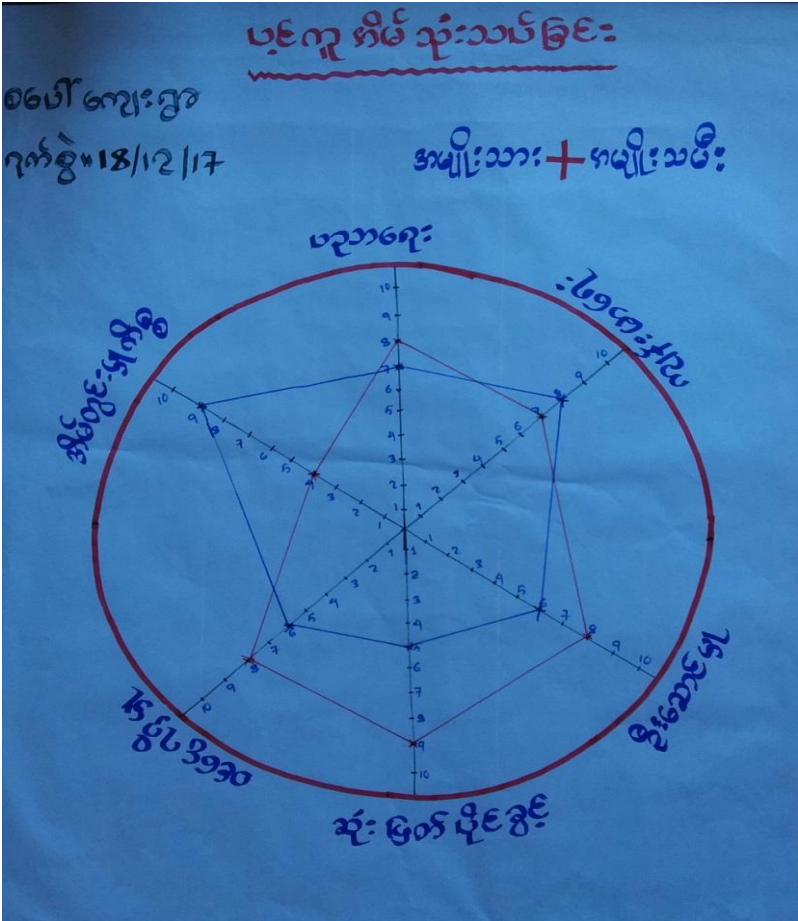 ပင့်ကူ အိမ် သုံးသပ်ခြင်း
စပေါ် ကျေးရွာ
ရက်စွဲ။ 18/12/17
အမျိုးသား + အမျိုးသမီး
ပညာရေး
ကျန်းမာရေး
ဦးဆောင်မှု
ဆုံးဖြတ်ပိုင်ခွင့်
အိမ်တွင်းမှုကိစ္စ
1 2 3 4 5 6 7 8 9 10
1 2 3 4 5 6 7 8 9 10
1 2 3 4 5 6 7 8 9 10
1 2 3 4 5 6 7 8 9 10
1 2 3 4 5 6 7 8 9 10
1 2 3 4 5 6 7 8 9 10